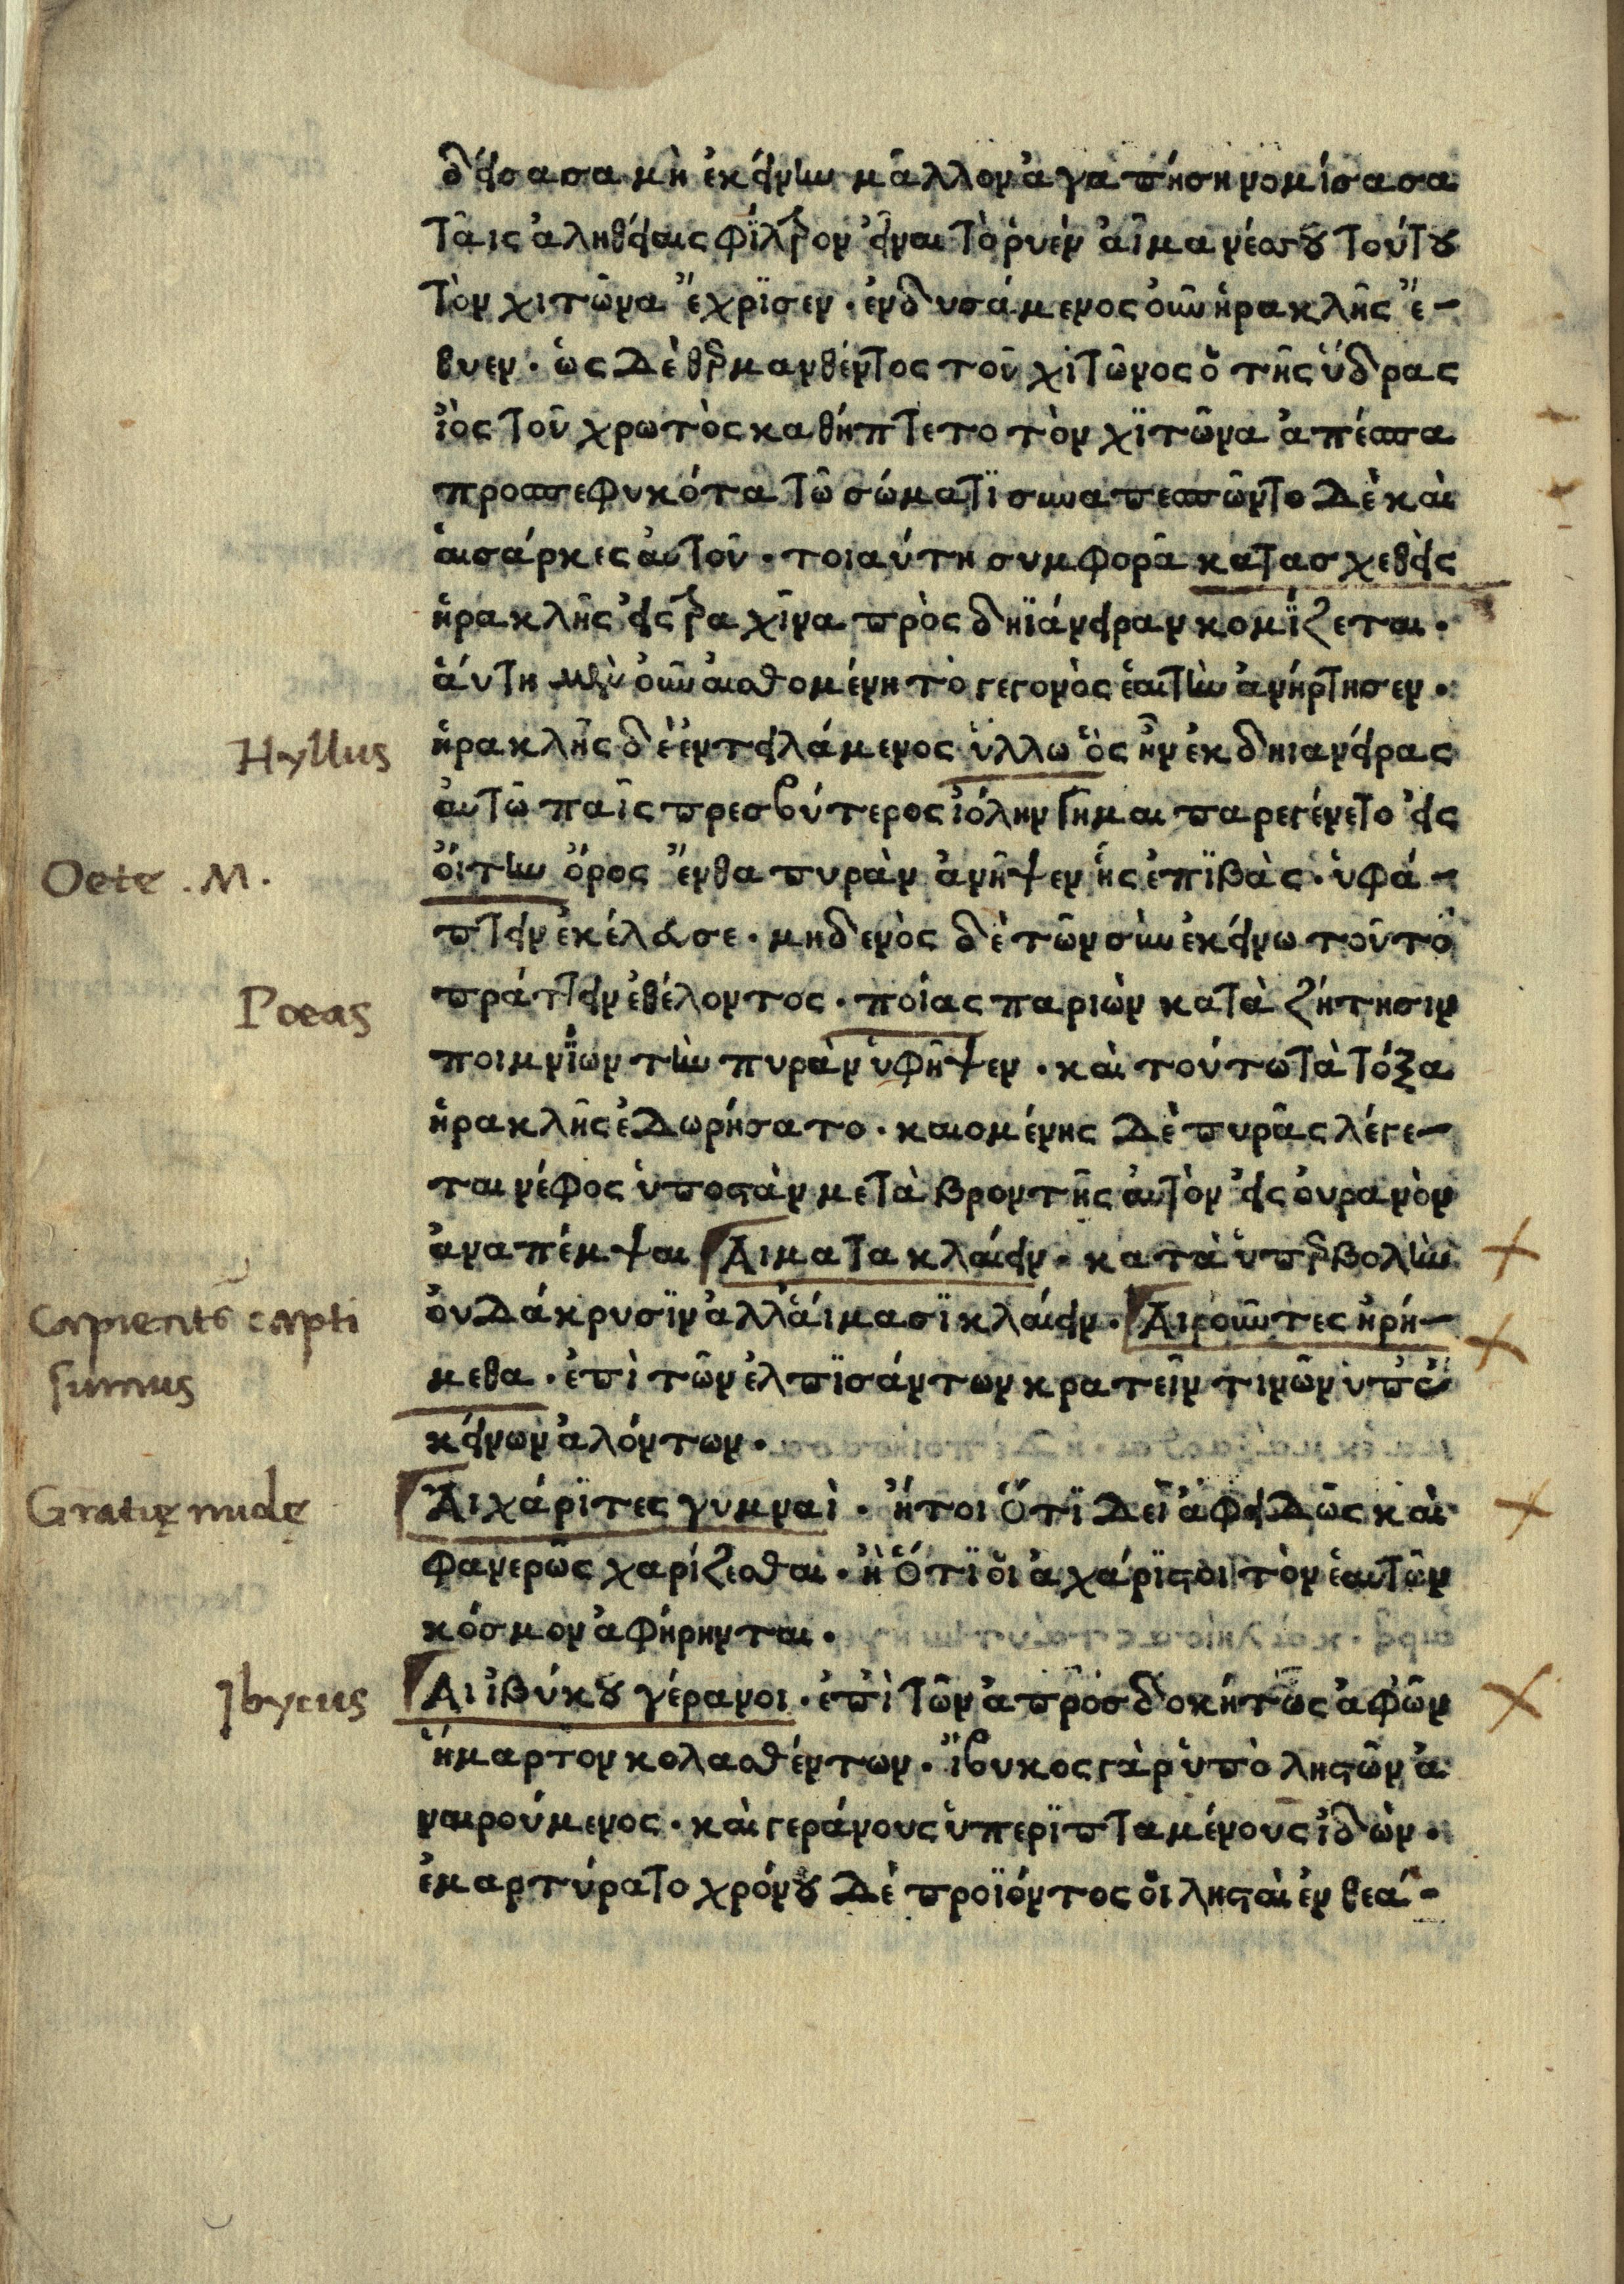 δείσασα μὴ ἐκείνην μᾶλλον ἀγαπήση νομίσασα
ταῖς ἀληθείαις φίλτρον εἶναι τὸ ῥυὲν αἷμα νέσσου τούτου
τὸν χιτῶνα ἔχρισεν. ἐνδυσάμενος οὖν ἡρακλῆς ἔ-
θυεν. ὡς δὲ θερμανθέντος τοῦ χιτῶνος ὁ τῆς ὕδρας
ἰὸς τοῦ χρωτὸς καθήπτετο τὸν χιτῶνα ἀπέσπα
προσπεφυκότα τῶ σώματι συναπεσπῶντο δὲ καὶ
αἱ σάρκες αὐτοῦ. τοιαύτη συμφορᾶ κατασχεθεὶς
ἡρακλῆς εἰς τραχῖνα πρὸς δηϊάνειραν κομίζεται.
ἁύτη μὲν οὖν αἰσθομένη τὸ γεγονὸς ἑαυτὴν ἀνήρτησεν.
Hyllus ἡρακλῆς δὲ ἐντειλάμενος ὑλλω ὃς ἦν ἐκ δηιανείρας
αὐτῶ παῖς πρεσβύτερος ἰόλην γῆμαι παρεγένετο εἰς
Oete . M. ὄιτην ὄρος ἔνθα πυρὰν ἀνῆψεν ἧς ἐπιβὰς. ὑφά-
πτειν ἐκέλευσε. μηδενὸς δὲ τῶν σὺν ἐκείνω τοῦτο
Poeas πράττειν ἐθέλοντος. ποίας παριὼν κατὰ ζήτησιν
ποιμνίων τὴν πυρὰν ὑφῆψεν. καὶ τούτω τὰ τόξα
ἡρακλῆς ἐδωρήσατο. καιομένης δὲ πυρᾶς λέγε-
ται νέφος ὑποστὰν μετὰ βροντῆς αὐτὸν εἰς ὀυρανὸν
ἀναπέμψαι Αιματα κλαίειν. κατὰ ὑπερβολὴν
ὀυ δάκρυσιν ἀλλ' ἅιμασι κλαίειν. Αιροῦντες ἡρή-
Capientes capti sumus μεθα. ἐπὶ τῶν ἐλπισάντων κρατεῖν τινῶν ὑπ' ἐ-
κείνων ἁλόντων.
Gratię nudę Αι χάριτες γυμναὶ. ἤτοι ὅτι δεῖ ἀφειδῶς καὶ
φανερῶς χαρίζεσθαι. ἢ ὅτι οἱ ἀχάριστοι τὸν ἑαυτῶν
κόσμον ἀφήρηνται.
Ibycus Αι ἰβύκου γέρανοι. ἐπὶ τῶν ἀπροσδοκήτως ἀφ' ὧν
ἥμαρτον κολασθέντων. ἴβυκος γὰρ ὑπὸ ληστῶν ἀ
ναιρούμενος. καὶ γεράνους ὑπεριπταμένους ἰδὼν.
ἐμαρτύρατο χρόνου δὲ προϊόντος οἱ λησταὶ ἐν θεά-